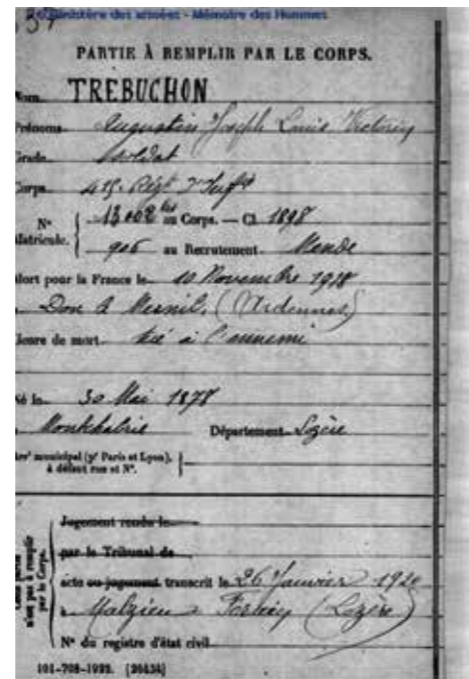 Ministère des armées - Mémoire des Hommes
PARTIE À REMPLIR PAR LE CORPS.
Nom TRÉBUCHON
Prénoms Augustin Joseph Louis Victorin
Grade Soldat
Corps 415e Régt d'Inftie
N° Matricule. 13002 au Corps. — Cl. 1898
906 au Recrutement Mende
Mort pour la France le 10 Novembre 1918
Dom le Mesnil (Ardennes)
Genre de mort tué à l'ennemi
Né le 30 Mai 1878
Département Lozère
Arr' municipal (p' Paris et Lyon),
à défaut rue et N°.
Jugement rendu le
par le Tribunal de
acte ou jugement transcrit le 26 Janvier 1920
à Malzieu Forain (Lozère)
N° du registre d'état civil
101-708-1922. [26434]